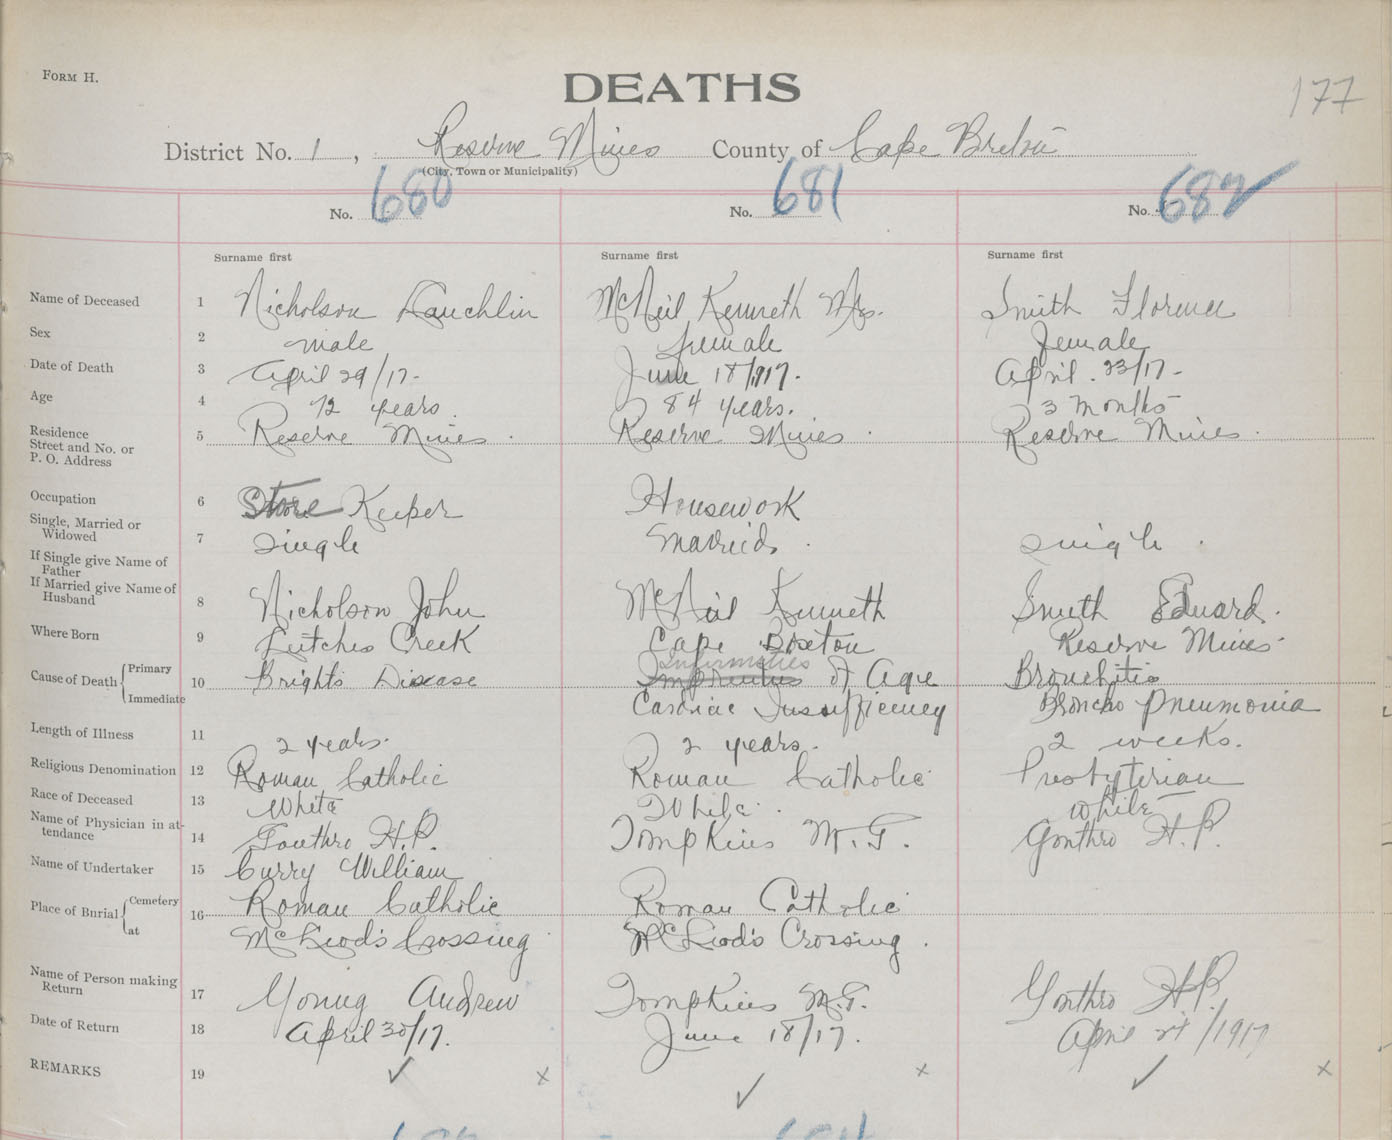 FORM H.
DEATHS
177
District No. 1, Reserve Mines County of Cape Breton
(City, Town or Municipality)
No. 680 No. 681 No. 682
Surname first Surname first Surname first
Name of Deceased 1 Nicholson Lauchlin McNeil Kenneth Mrs. Smith Florence
Sex 2 male female Female
Date of Death 3 April 29/17- June 18/1917. April. 23/17-
Age 4 72 years. 84 years. 3 months
Residence
Street and No. or
P. O. Address 5 Reserve Mines. Reserve Mines. Reserve Mines.
Occupation 6 Store Keeper Housework
Single, Married or
Widowed 7 Single Married. Single.
If Single give Name of
Father
If Married give Name of
Husband 8 Nicholson John McNeil Kenneth Smith Edward.
Where Born 9 Leitches Creek Cape Breton Reserve Mines
Infirmities
Cause of Death { Primary 10 Brights Disease of Age Bronchitis
Immediate Cardiac Insufficiency Broncho Pneumonia
Length of Illness 11 2 years. 2 years. 2 weeks.
Religious Denomination 12 Roman Catholic Roman Catholic Presbyterian
Race of Deceased 13 White White. White
Name of Physician in at-
tendance 14 Gouthro H.P. Tompkins M.G. Gouthro H.P.
Name of Undertaker 15 Curry William
Place of Burial { Cemetery 16 Roman Catholic Roman Catholic
at McLeod's Crossing McLeod's Crossing.
Name of Person making
Return 17 Young Andrew Tompkins M.G. Gouthro H.P.
Date of Return 18 April 30/17. June 18/17. April 24/1917
REMARKS 19 ✓ x ✓ x ✓ x